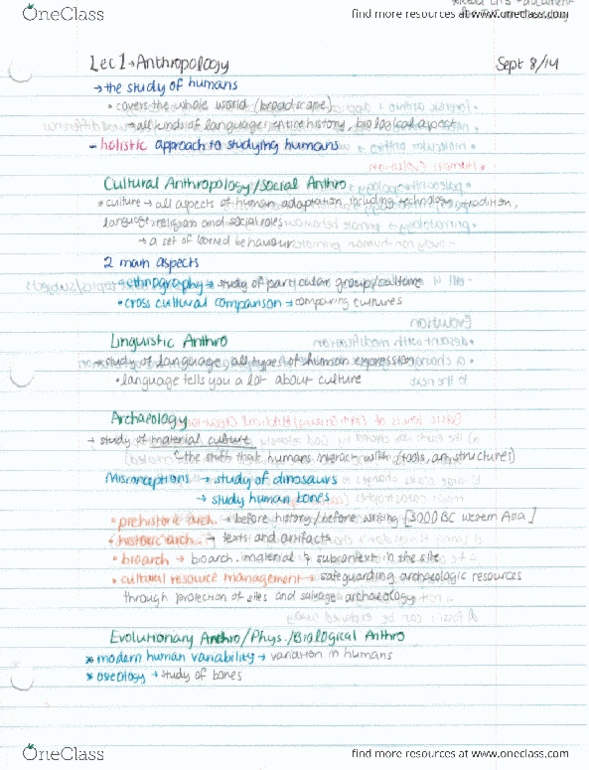 OneClass
find more resources at www.oneclass.com
Lec 1 → Anthropology
Sept 8/14
→ the study of humans
• covers the whole world (broad scape)
→ all kinds of language, entire history, biological aspect
- holistic approach to studying humans
Cultural Anthropology/Social Anthro
• culture → all aspects of human adaptation including technology, tradition,
language, religion and social roles
→ a set of learned behaviour
2 main aspects
• ethnography → study of particular group/culture
• cross cultural comparison → comparing cultures
Linguistic Anthro
→ study of language, all types of human expression
• language tells you a lot about culture
Archaeology
→ study of material culture
↳ the stuff that humans interact with (tools, art, structures)
Misconceptions → study of dinosaurs
→ study human bones
• prehistoric arch. → before history/before writing [3000 BC western Asia]
• historic arch. → texts and artifacts
• bioarch → bioarch. material & subcontext in the site
• cultural resource management → safeguarding archaeologic resources
through protection of sites and salvage archaeology
Evolutionary Anthro/Phys./Biological Anthro
* modern human variability → variation in humans
* osteology → study of bones
OneClass
find more resources at www.oneclass.com